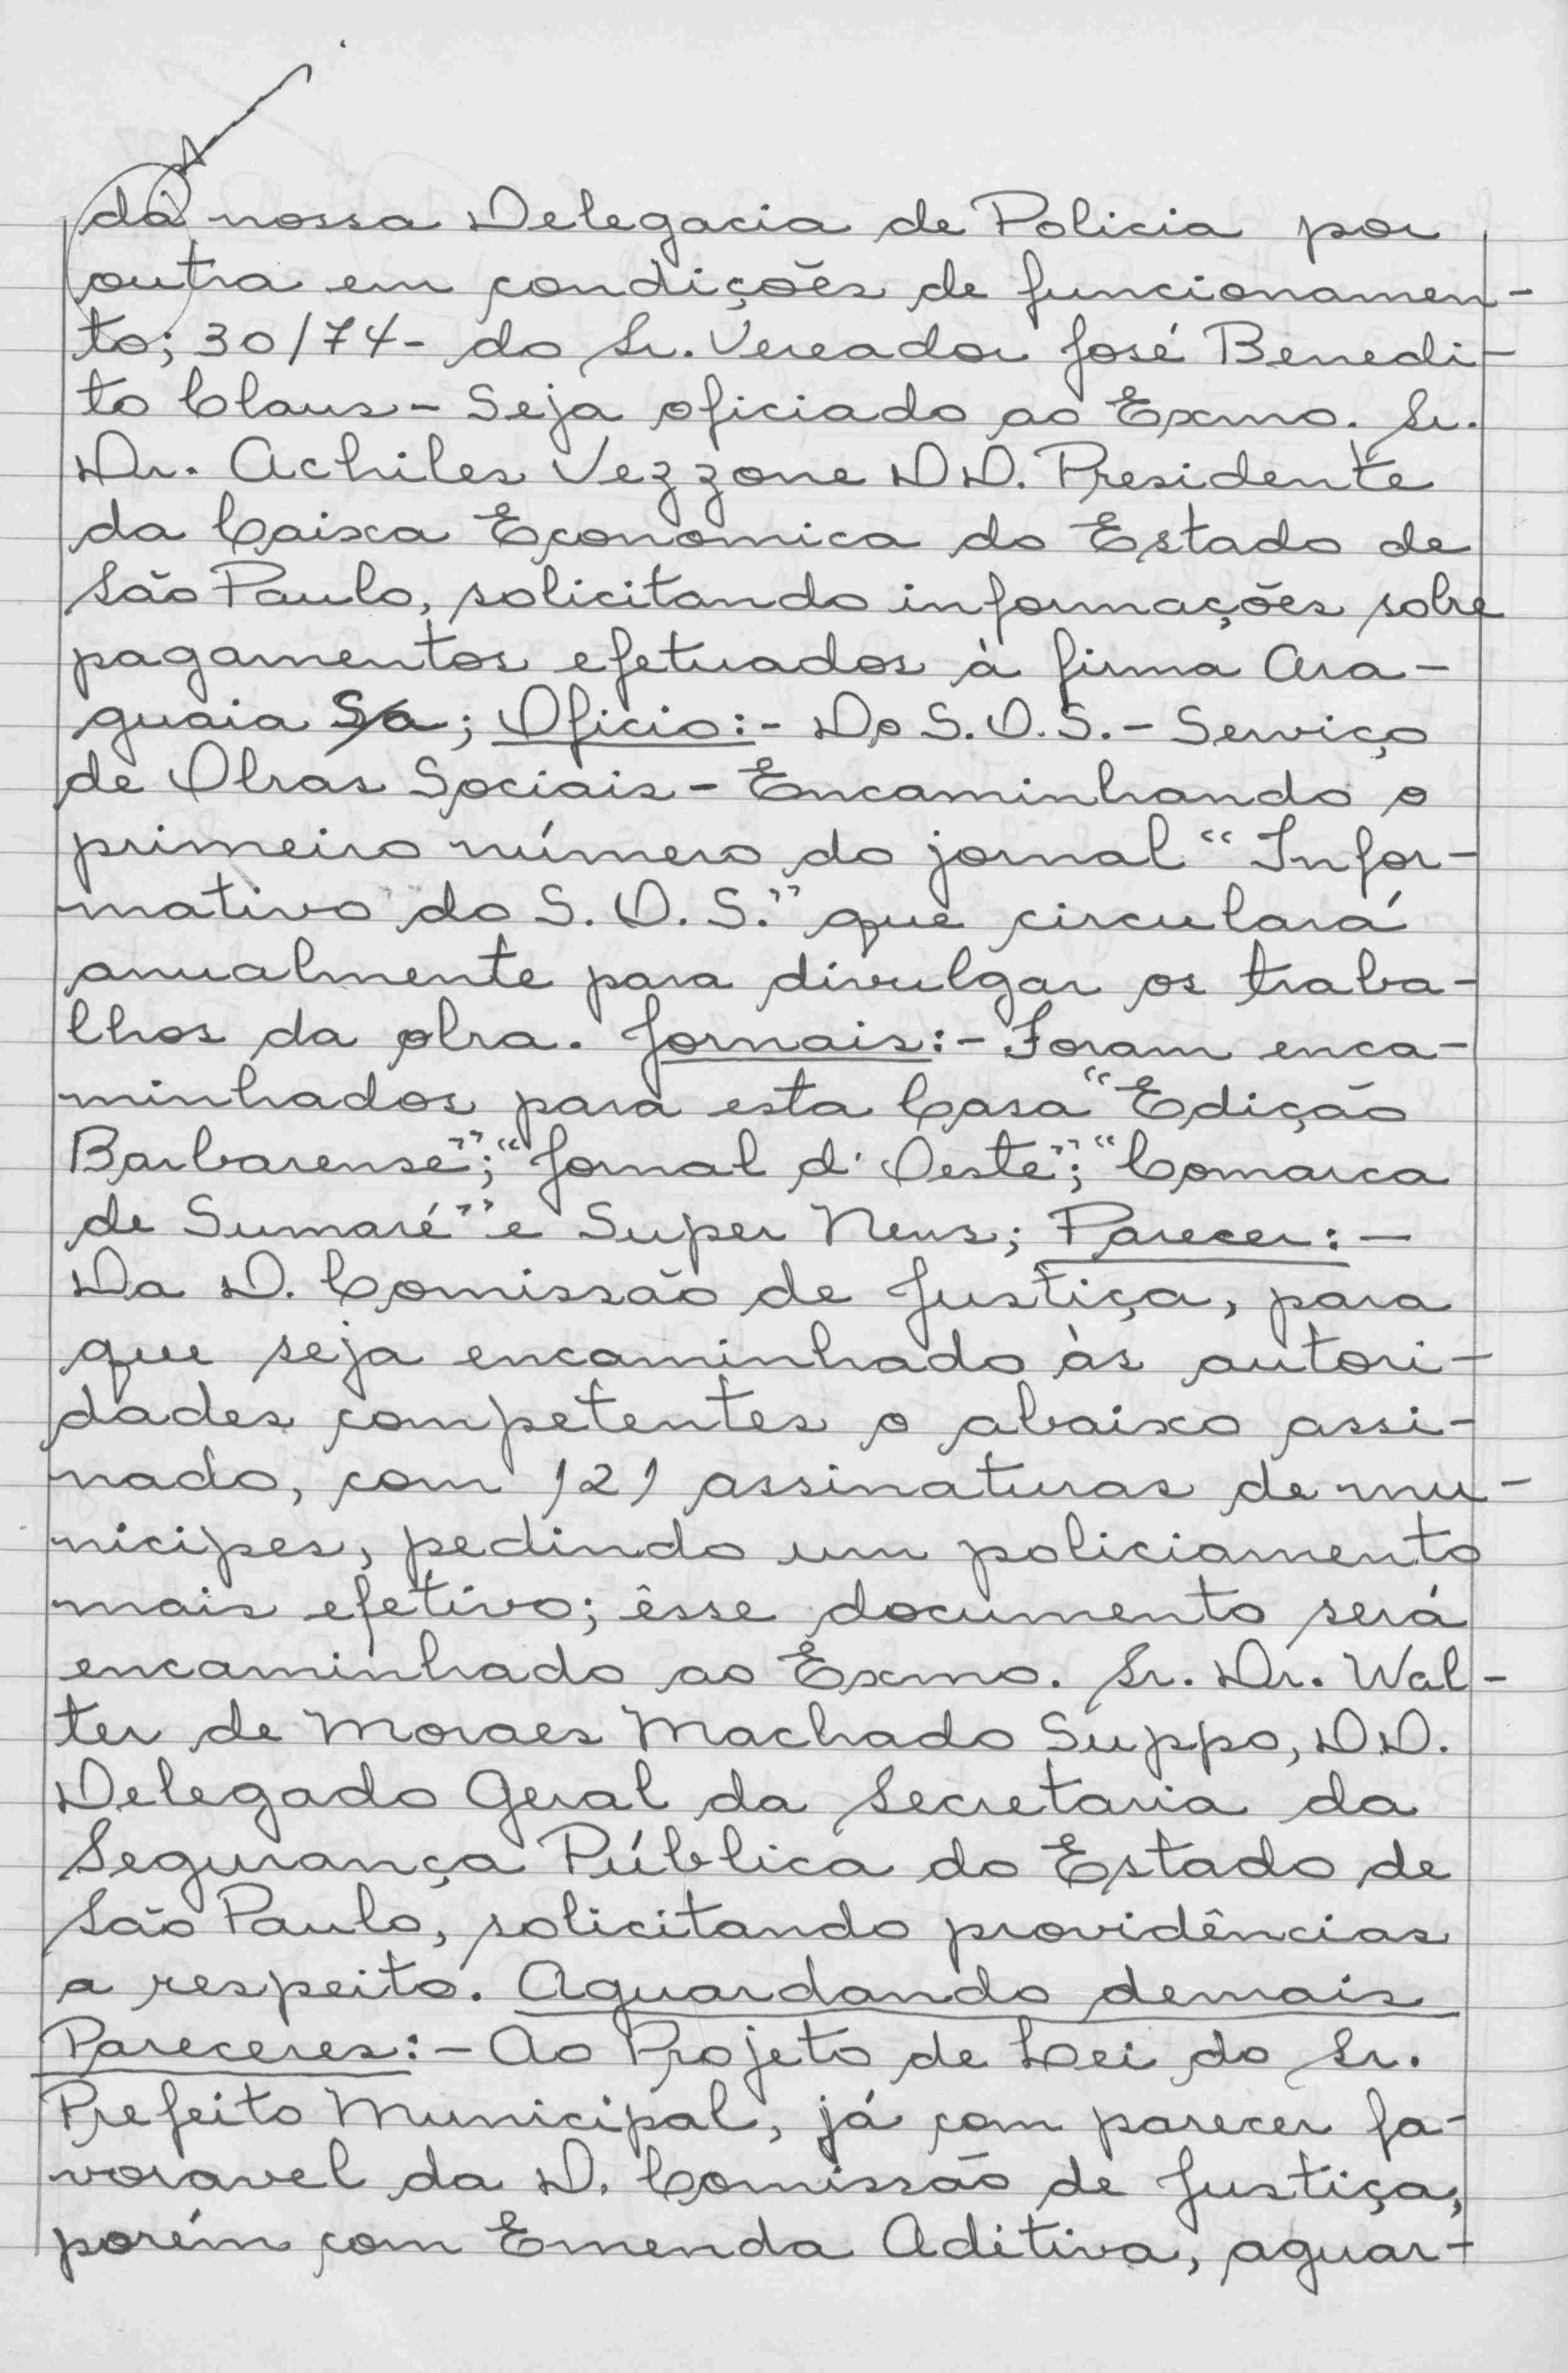 da nossa Delegacia de Policia por
outra em condições de funcionamen-
to; 30/74- do Sr. Vereador José Benedi-
to Claus - Seja oficiado ao Exmo. Sr.
Dr. Achiles Vezzone DD. Presidente
da Caixa Economica do Estado de
São Paulo, solicitando informações sobre
pagamentos efetuados à firma Ara-
guaia S/a; Oficio:- Do S.O.S. - Serviço
de Obras Sociais - Encaminhando o
primeiro número do jornal "Infor-
mativo do S.O.S." que circulará
anualmente para divulgar os traba-
lhos da obra. Jornais:- Foram enca-
minhados para esta Casa "Edição
Barbarense"; "Jornal d'Oeste"; "Comarca
de Sumaré" e Super News; Parecer:-
Da D. Comissão de Justiça, para
que seja encaminhado às autori-
dades competentes o abaixo assi-
nado, com 121 assinaturas de mu-
nicipes, pedindo um policiamento
mais efetivo; êsse documento será
encaminhado ao Exmo. Sr. Dr. Wal-
ter de Moraes Machado Suppo, DD.
Delegado Geral da Secretaria da
Segurança Pública do Estado de
São Paulo, solicitando providências
a respeito. Aguardando demais
Pareceres:- Ao Projeto de Lei do Sr.
Prefeito Municipal, já com parecer fa-
voravel da D. Comissão de Justiça,
porém com Emenda Aditiva, aguar-